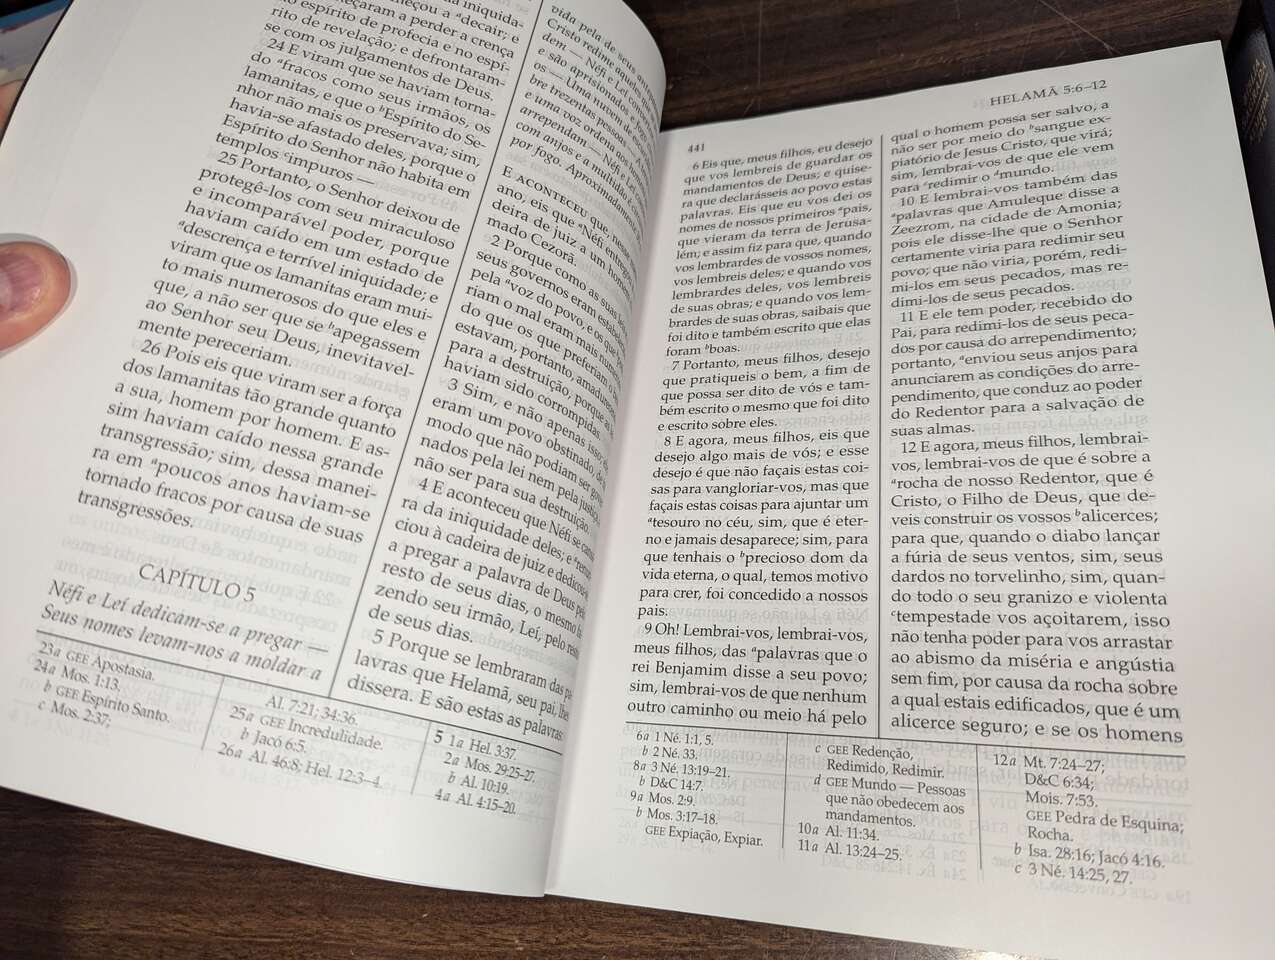 nheçou a ᵃdecair; e
começaram a perder a crença
no espírito de profecia e no espí-
rito de revelação; e defrontaram-
se com os julgamentos de Deus.
24 E viram que se haviam torna-
do ᵃfracos como seus irmãos, os
lamanitas, e que o ᵇEspírito do Se-
nhor não mais os preservava; sim,
havia-se afastado deles, porque o
Espírito do Senhor não habita em
templos ᶜimpuros —
25 Portanto, o Senhor deixou de
protegê-los com seu miraculoso
e incomparável poder, porque
haviam caído em um estado de
ᵃdescrença e terrível iniquidade; e
viram que os lamanitas eram mui-
to mais numerosos do que eles e
que, a não ser que se ᵇapegassem
ao Senhor seu Deus, inevitavel-
mente pereceriam.
26 Pois eis que viram ser a força
dos lamanitas tão grande quanto
a sua, homem por homem. E as-
sim haviam caído nessa grande
transgressão; sim, dessa manei-
ra em ᵃpoucos anos haviam-se
tornado fracos por causa de suas
transgressões.
CAPÍTULO 5
Néfi e Leí dedicam-se a pregar —
Seus nomes levam-nos a moldar a
vida pela de seus
Cristo redime aqueles
dem — Néfi e Leí
e são aprisionados e
os — Uma nuvem de
bre trezentas pessoas
e uma voz ordena aos
arrependam — Néfi e Leí
com anjos e a multidão é
por fogo. Aproximadamente
E ACONTECEU que, nesse
ano, eis que ᵃNéfi entregou
deira de juiz a um homem
mado Cezorã.
2 Porque como as suas
seus governos eram
pela ᵃvoz do povo, e os que
riam o mal eram mais
do que os que preferiam o
estavam, portanto,
para a destruição, porque as
haviam sido corrompidas.
3 Sim, e não apenas isso;
eram um povo obstinado, de
modo que não podiam ser gover-
nados pela lei nem pela justiça, a
não ser para sua destruição.
4 E aconteceu que Néfi se
ra da iniquidade deles; e
ciou à cadeira de juiz e dedicou-se
a pregar a palavra de Deus pelo
resto de seus dias, o mesmo fa-
zendo seu irmão, Leí, pelo resto
de seus dias.
5 Porque se lembraram das pa-
lavras que Helamã, seu pai, lhes
dissera. E são estas as palavras:
23a GEE Apostasia.
24a Mos. 1:13.
b GEE Espírito Santo.
c Mos. 2:37;
Al. 7:21; 34:36.
25a GEE Incredulidade.
b Jacó 6:5.
26a Al. 46:8; Hel. 12:3–4.
5 1a Hel. 3:37.
2a Mos. 29:25–27.
b Al. 10:19.
4a Al. 4:15–20.
441
HELAMÃ 5:6–12
6 Eis que, meus filhos, eu desejo
que vos lembreis de guardar os
mandamentos de Deus; e quise-
ra que declarásseis ao povo estas
palavras. Eis que eu vos dei os
nomes de nossos primeiros ᵃpais,
que vieram da terra de Jerusa-
lém; e assim fiz para que, quando
vos lembrardes de vossos nomes,
vos lembreis deles; e quando vos
lembrardes deles, vos lembreis
de suas obras; e quando vos lem-
brardes de suas obras, saibais que
foi dito e também escrito que elas
foram ᵇboas.
7 Portanto, meus filhos, desejo
que pratiqueis o bem, a fim de
que possa ser dito de vós e tam-
bém escrito o mesmo que foi dito
e escrito sobre eles.
8 E agora, meus filhos, eis que
desejo algo mais de vós; e esse
desejo é que não façais estas coi-
sas para vangloriar-vos, mas que
façais estas coisas para ajuntar um
ᵃtesouro no céu, sim, que é eter-
no e jamais desaparece; sim, para
que tenhais o ᵇprecioso dom da
vida eterna, o qual, temos motivo
para crer, foi concedido a nossos
pais.
9 Oh! Lembrai-vos, lembrai-vos,
meus filhos, das ᵃpalavras que o
rei Benjamim disse a seu povo;
sim, lembrai-vos de que nenhum
outro caminho ou meio há pelo
qual o homem possa ser salvo, a
não ser por meio do ᵇsangue ex-
piatório de Jesus Cristo, que virá;
sim, lembrai-vos de que ele vem
para ᶜredimir o ᵈmundo.
10 E lembrai-vos também das
ᵃpalavras que Amuleque disse a
Zeezrom, na cidade de Amonia;
pois ele disse-lhe que o Senhor
certamente viria para redimir seu
povo; que não viria, porém, redi-
mi-los em seus pecados, mas re-
dimi-los de seus pecados.
11 E ele tem poder, recebido do
Pai, para redimi-los de seus peca-
dos por causa do arrependimento;
portanto, ᵃenviou seus anjos para
anunciarem as condições do arre-
pendimento, que conduz ao poder
do Redentor para a salvação de
suas almas.
12 E agora, meus filhos, lembrai-
vos, lembrai-vos de que é sobre a
ᵃrocha de nosso Redentor, que é
Cristo, o Filho de Deus, que de-
veis construir os vossos ᵇalicerces;
para que, quando o diabo lançar
a fúria de seus ventos, sim, seus
dardos no torvelinho, sim, quan-
do todo o seu granizo e violenta
ᶜtempestade vos açoitarem, isso
não tenha poder para vos arrastar
ao abismo da miséria e angústia
sem fim, por causa da rocha sobre
a qual estais edificados, que é um
alicerce seguro; e se os homens
6a 1 Né. 1:1, 5.
b 2 Né. 33.
8a 3 Né. 13:19–21.
b D&C 14:7.
9a Mos. 2:9.
b Mos. 3:17–18.
GEE Expiação, Expiar.
c GEE Redenção,
Redimido, Redimir.
d GEE Mundo — Pessoas
que não obedecem aos
mandamentos.
10a Al. 11:34.
11a Al. 13:24–25.
12a Mt. 7:24–27;
D&C 6:34;
Mois. 7:53.
GEE Pedra de Esquina;
Rocha.
b Isa. 28:16; Jacó 4:16.
c 3 Né. 14:25, 27.